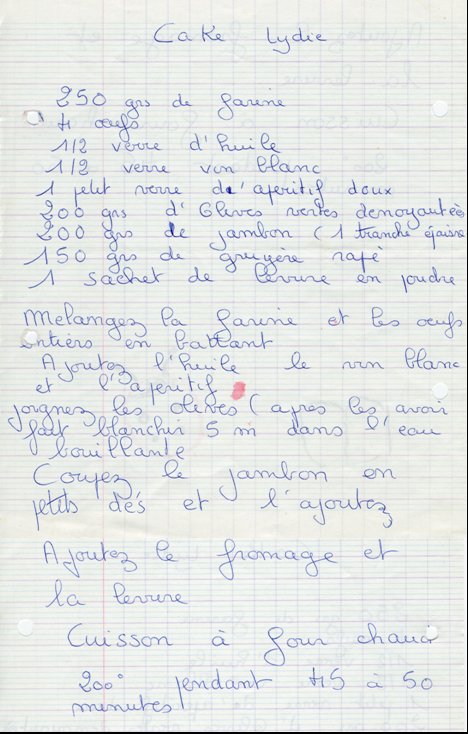 Cake Lydie
250 grs de farine
4 oeufs
1/2 verre d'huile
1/2 verre vin blanc
1 petit verre de d'aperitif doux
200 grs d'Olives vertes denoyautées
200 grs de jambon (1 tranche épaisse
150 grs de gruyère rapé
1 sachet de levure en poudre
Melangez la farine et les oeufs
entiers en battant
Ajoutez l'huile le vin blanc
et l'aperitif
joignez les olives (apres les avoir
fait blanchir 5 m dans l'eau
bouillante
Coupez le jambon en
petits dés et l'ajoutez
Ajoutez le fromage et
la levure
Cuisson à four chaud
200° pendant 45 à 50
minutes